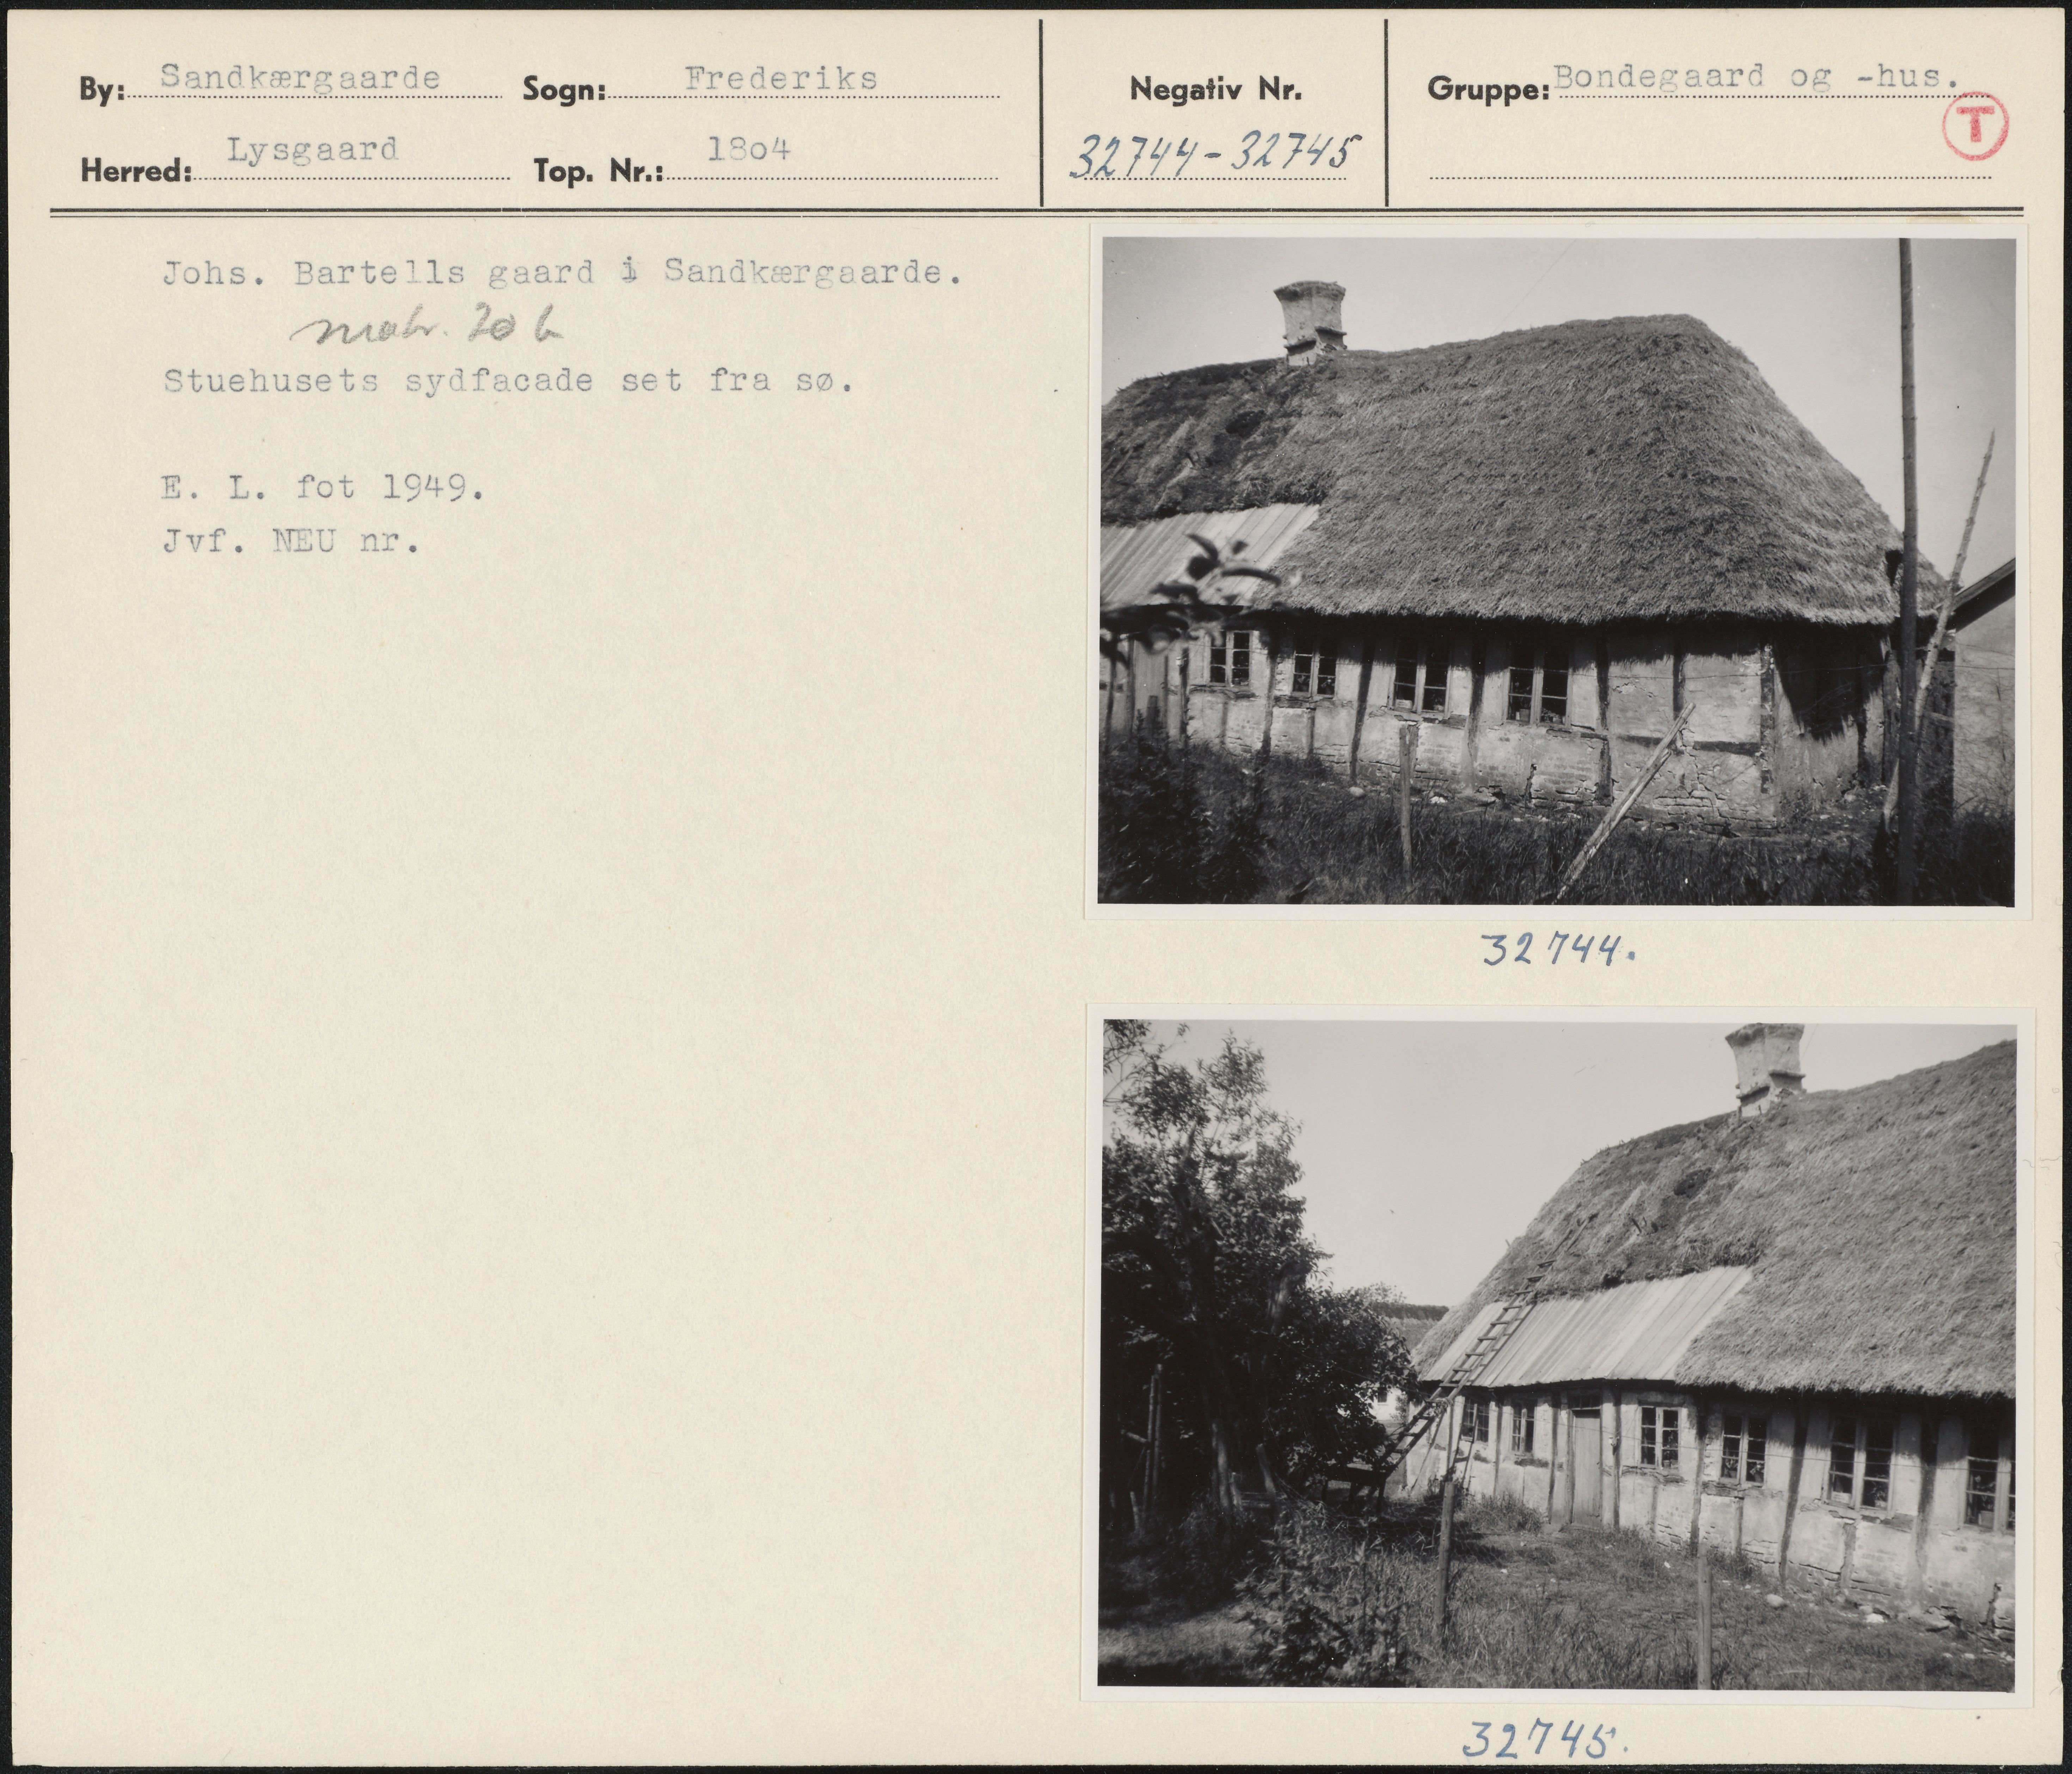 By: Sandkærgaarde Sogn: Frederiks Negativ Nr. Gruppe: Bondegaard og -hus.
T
Herred: Lysgaard Top. Nr.: 18o4 32744-32745
Johs. Bartells gaard i Sandkærgaarde.
matr. 20 b
Stuehusets sydfacade set fra sø.
E. L. fot 1949.
Jvf. NEU nr.
32744.
32745.